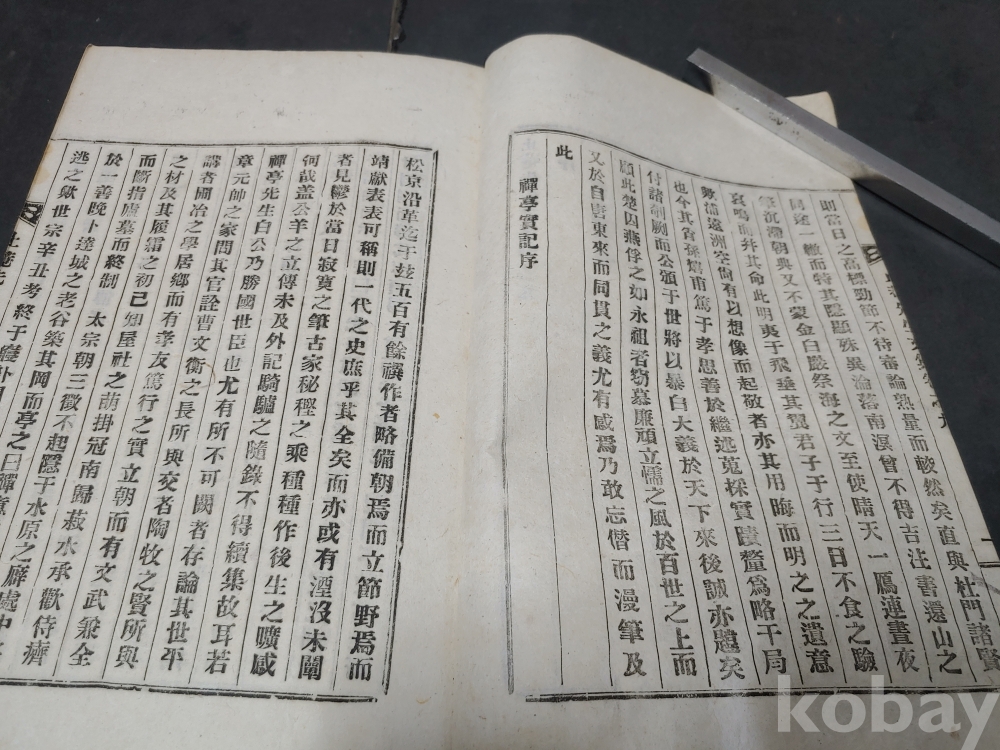 則當日之高標勁節不待審論熟量而皎然矣直與杜門諸賢
同途一轍而特其隱顯殊異淪落南溟曾不得吉注書還山之
筆沉滯朝典又不蒙金白嚴祭海之文至使晴天一鴈連晝夜
哀鳴而幷其命此明夷于飛垂其翼君子于行三日不食之驗
歟浦遠洲空尙有以想像而起敬者亦其用晦而明之之遺意
也今其胄孫熔甫篤于孝思善於繼述蒐採實蹟釐爲略干局
付諸剞劂而公頒于世將以暴白大義於天下來後誠亦韙矣
顧此楚囚燕俘之如永祖者竊慕廉頑立懦之風於百世之上而
又於自唐東來而同貫之義尤有感焉乃敢忘僭而漫筆及
此
禪亭實記序
松京沿革迄于玆五百有餘禩作者略備朝焉而立節野焉而
靖獻表表可稱則一代之史庶乎其全矣而亦或有湮沒未闡
者見鬱於當日寂寞之筆古家秘穉之乘種種作後生之曠感
何哉盖公羊之立傳未及外記騎驢之隨錄不得續集故耳若
禪亭先生白公乃勝國世臣也尤有所不可闕者存論其世平
章元帥之家問其官詮曹文衡之長所與交者陶牧之賢所與
講者圃冶之學居鄕而有孝友篤行之實立朝而有文武兼全
之材及其履霜之初已知屋社之萌掛冠南歸菽水承歡侍癠
而斷指廬墓而終制太宗朝三徵不起隱于水原之癖處中
於一善晩卜達城之老谷築其岡而亭之曰禪意
逃之歟世宗辛丑考終于
kobay